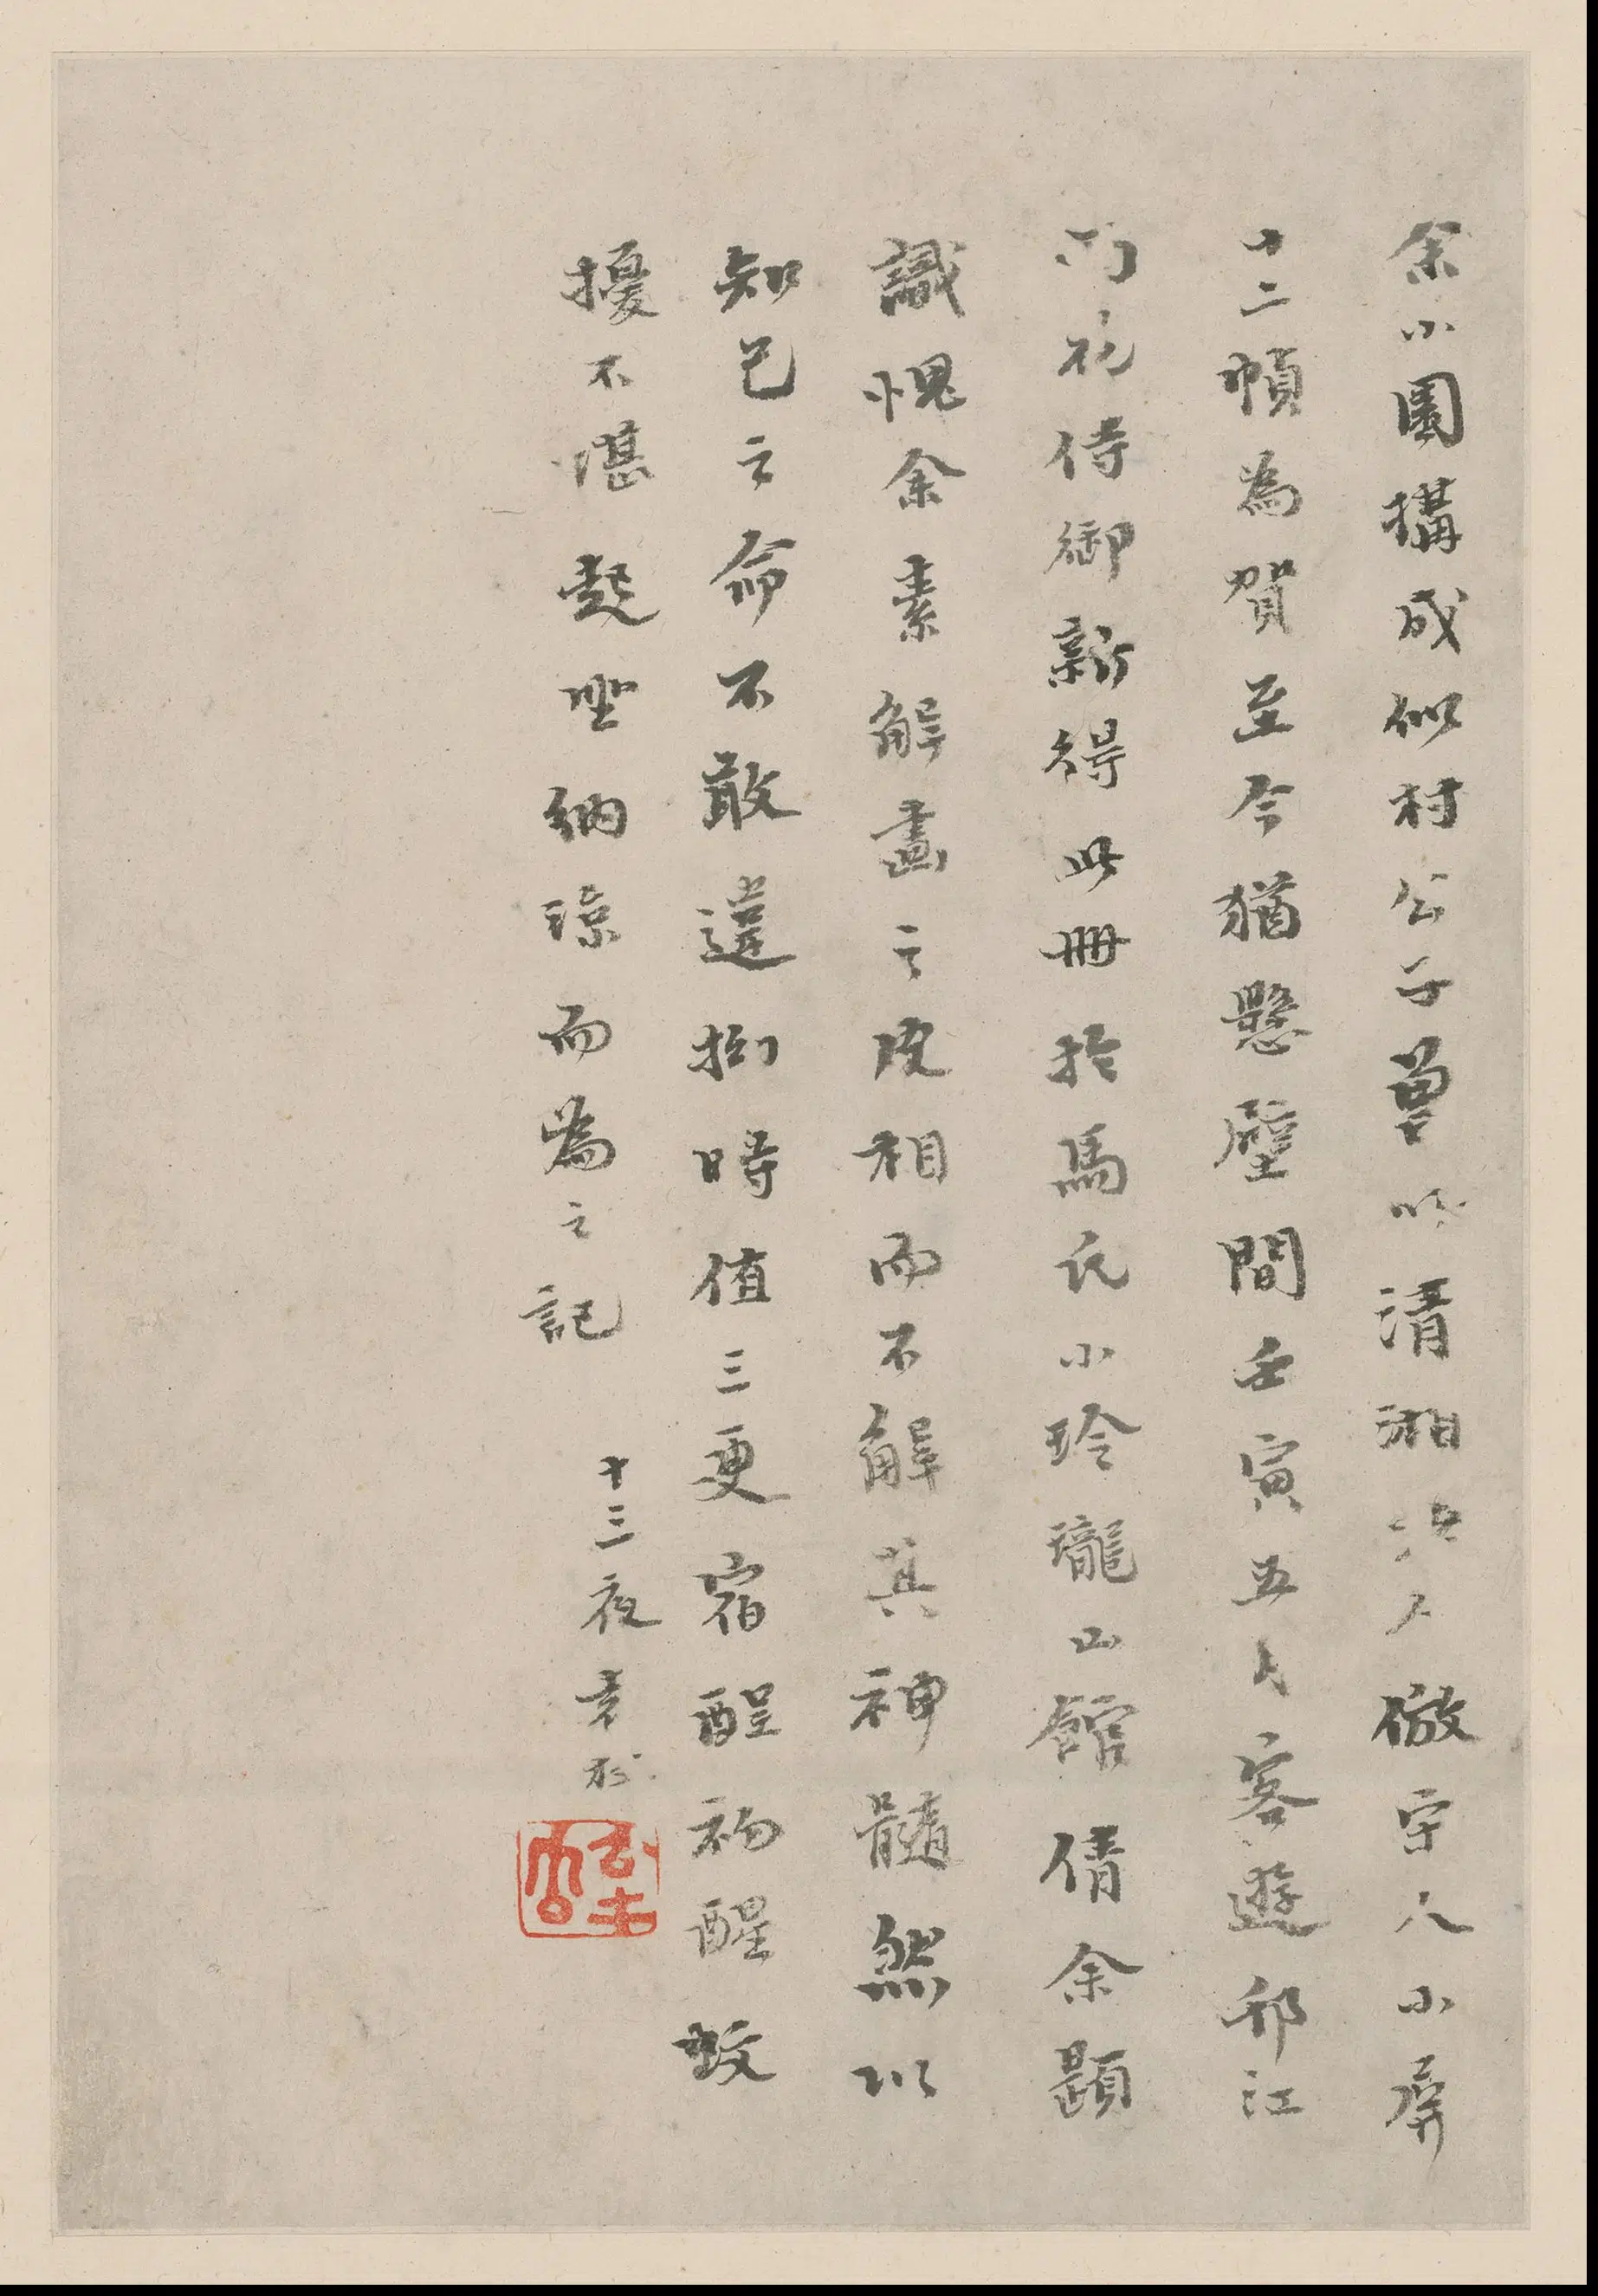 余小園構成似村公子曾以清湘人倣宋人小屏
十二幀為賀至今猶懸壁間壬寅五月客遊邗江
花侍御新得此冊於馬氏小玲瓏山館倩余題
識愧余素解畫之皮相而不解其神髓然以
知己之命不敢違拗時值三更宿酲初醒蚊
擾不堪起坐納涼而為之記 十三夜袁枚